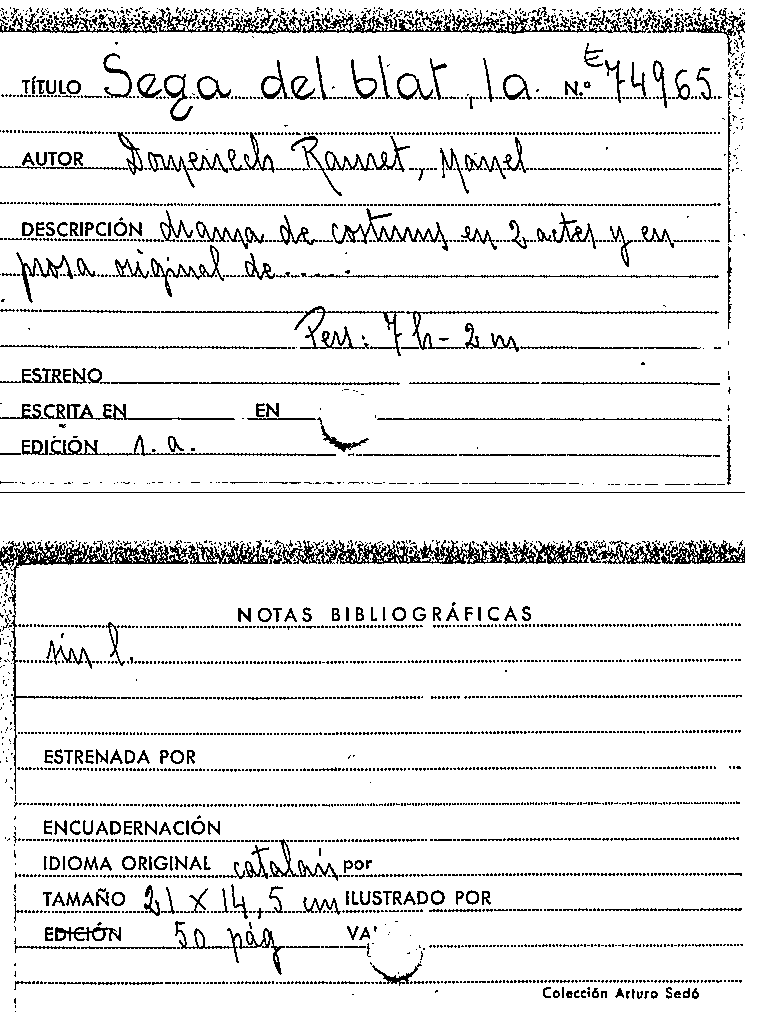 TÍTULO Sega del blat, la. N.º E 74965
AUTOR Domenech Ramet, Manel
DESCRIPCIÓN drama de costums en 2 actes y en
prosa original de.....
Pers: 7 h - 2 m
ESTRENO
ESCRITA EN EN
EDICIÓN s.a.
NOTAS BIBLIOGRÁFICAS
sin l.
ESTRENADA POR
ENCUADERNACIÓN
IDIOMA ORIGINAL catalán por
TAMAÑO 21 x 14,5 cm ILUSTRADO POR
EDICIÓN 50 pág VA
Colección Arturo Sedó